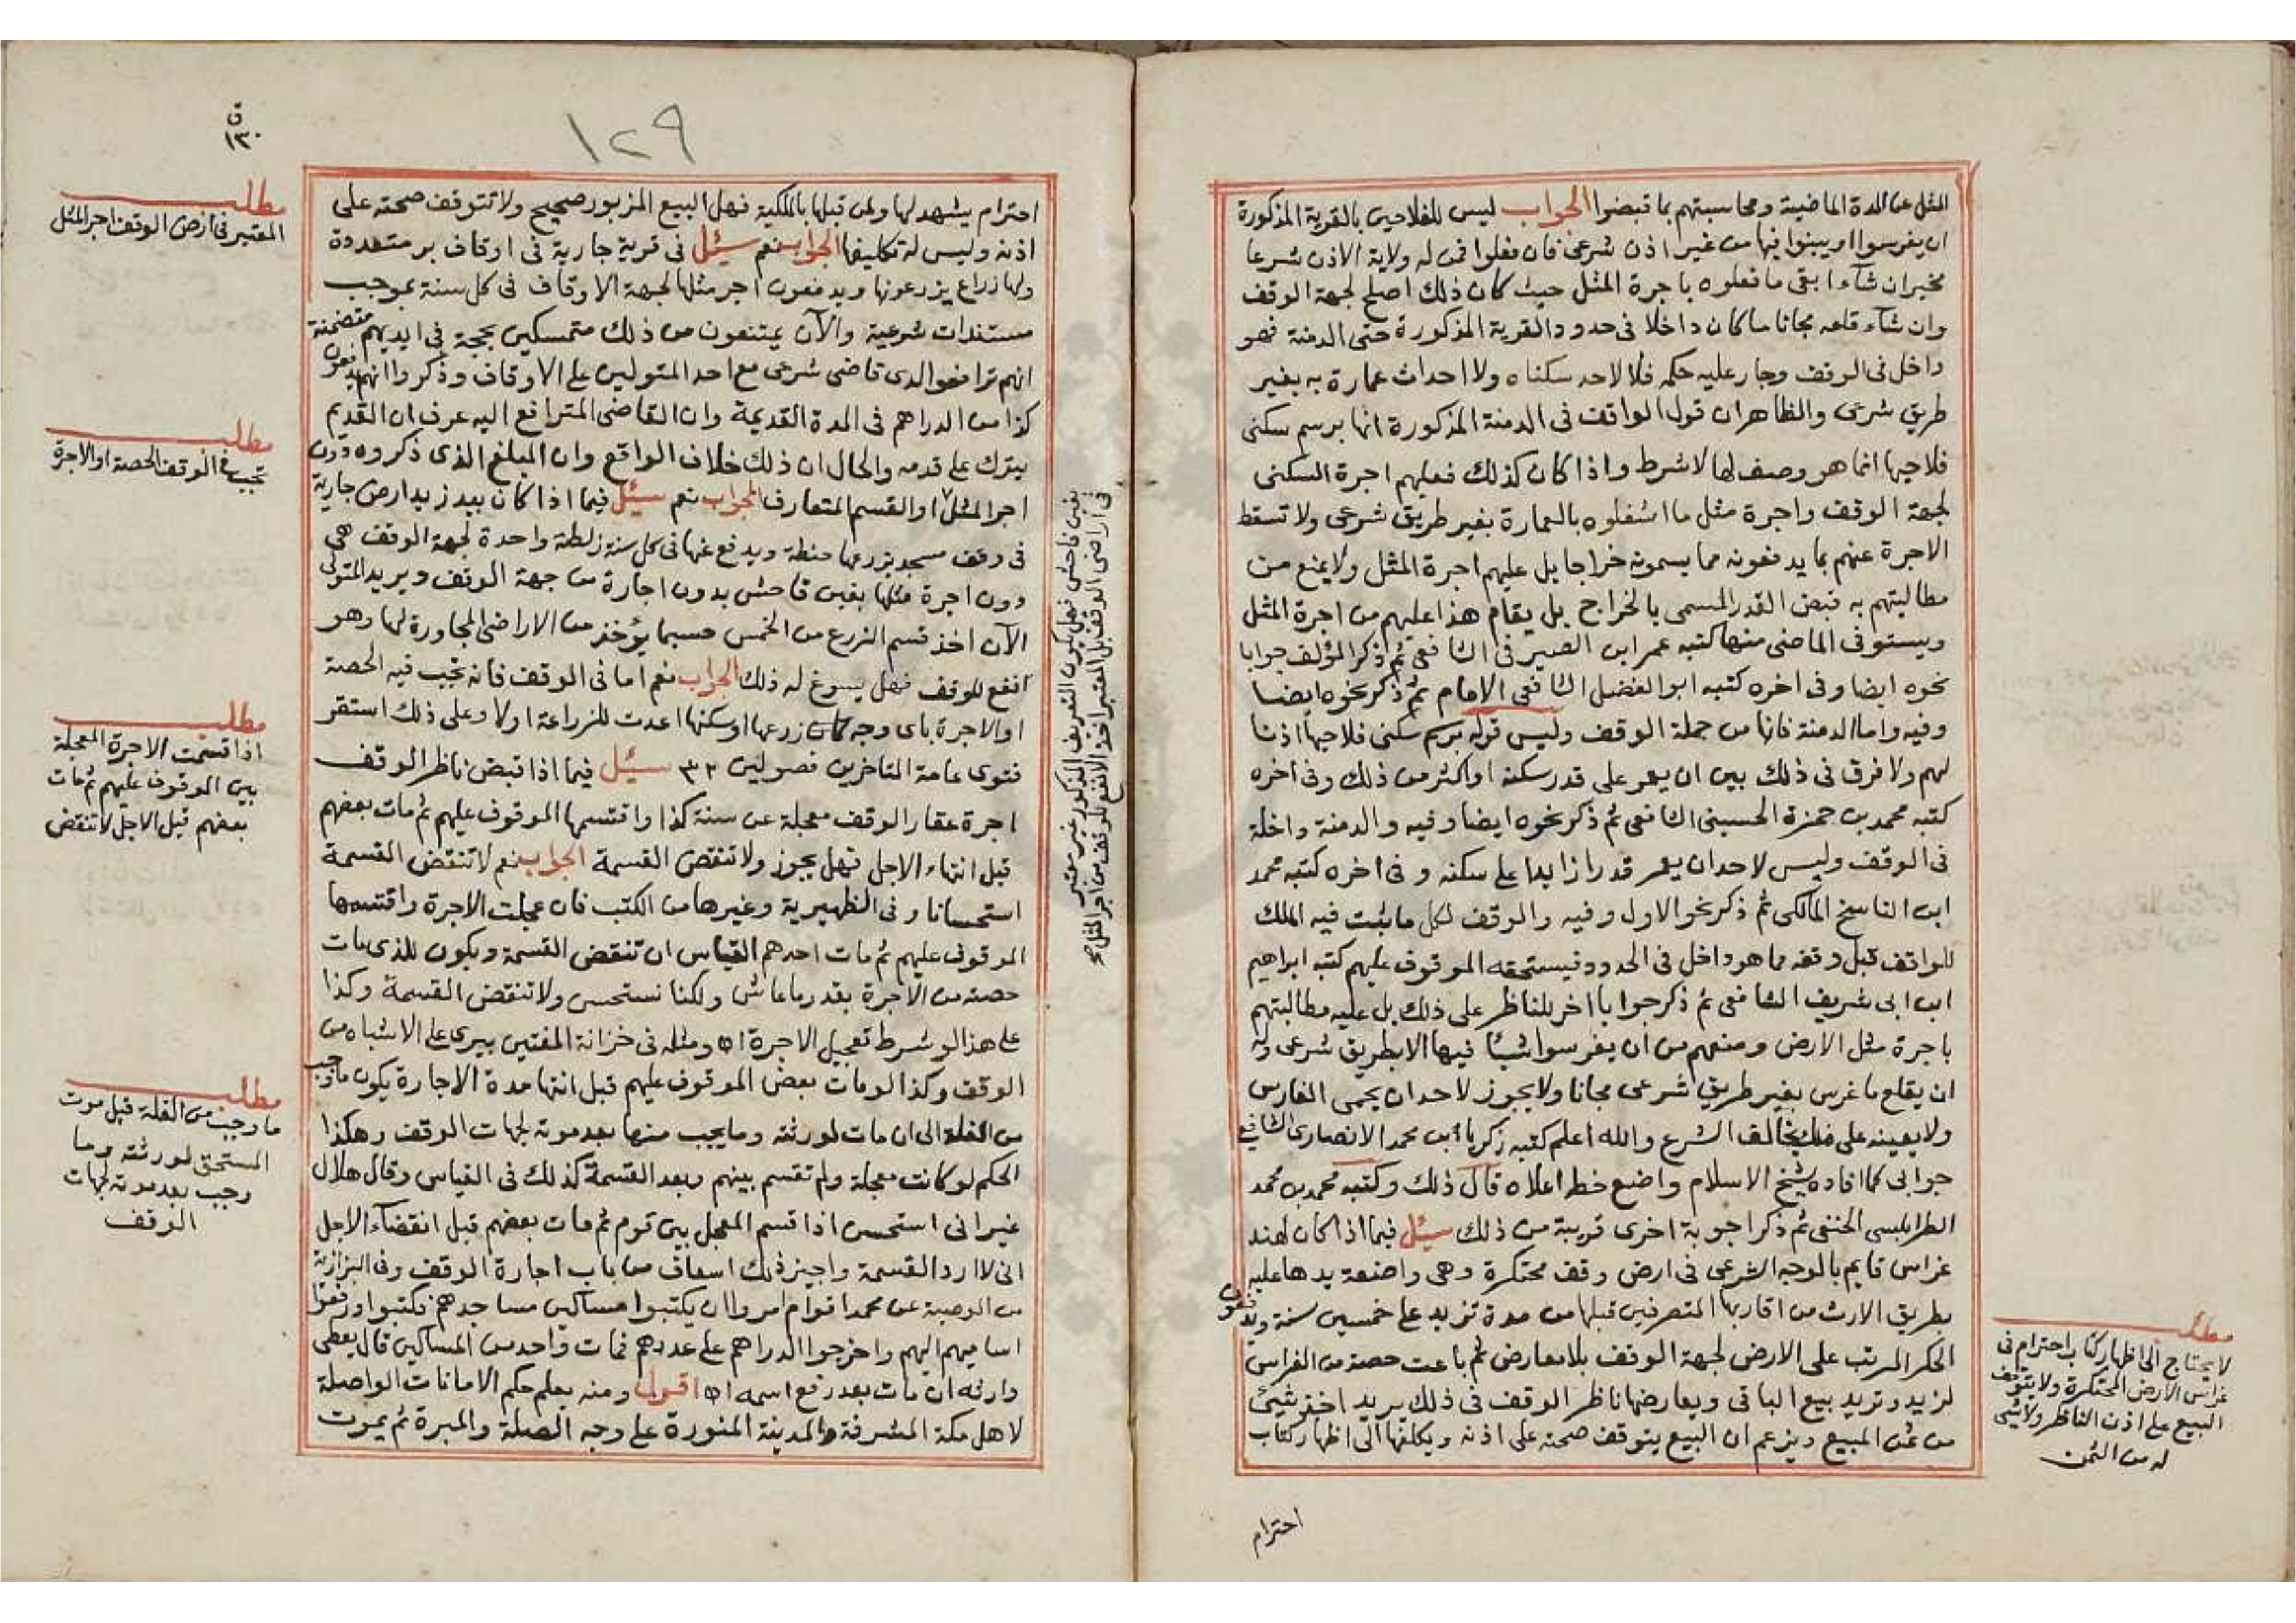 المثل عن المدة الماضية ومحاسبتهم بما قبضوا الجواب ليس للفلاحين بالقرية المذكورة
ان يغرسوا او يبنوا فيها من غير اذن شرعى فان فعلوا فمن له ولاية الاذن شرعا
مخير ان شآء ابقى ما فعلوه باجرة المثل حيث كان ذلك اصلح لجهة الوقف
وان شآء قلعه مجانا ما كان داخلا فى حدود القرية المذكورة حتى الدمنة فهو
داخل فى الوقف وجار عليه حكمه فلا لاحد سكناه ولا احداث عمارة به بغير
طريق شرعى والظاهر ان قول الواقف فى الدمنة المذكورة انها برسم سكنى
فلاحيها انما هو وصف لها لا شرط واذا كان كذلك فعليهم اجرة السكنى
لجهة الوقف واجرة مثل ما اشغلوه بالعمارة بغير طريق شرعى ولا تسقط
الاجرة عنهم بما يدفعونه مما يسمونه خراجا بل عليهم اجرة المثل ولا يمنع من
مطالبتهم به قبض القدر المسمى بالخراج بل يقام هذا عليهم من اجرة المثل
ويستوفى الماضى منها كتبه عمر ابن الصيرفى الشافعى ثم ذكر المؤلف جوابا
نحوه ايضا وفى اخره كتبه ابو الفضل الشافعى الامام ثم ذكر نحوه ايضا
وفيه واما الدمنة فانها من جملة الوقف وليس قوله برسم سكنى فلاحيها اذنا
لهم ولا فرق فى ذلك بين ان يعمر على قدر سكنه او اكثر من ذلك وفى اخره
كتبه محمد بن حمزة الحسينى الشافعى ثم ذكر نحوه ايضا وفيه والدمنة داخلة
فى الوقف وليس لاحد ان يعمر قدرا زايدا على سكنه وفى اخره كتبه محمد
ابن الناسخ المالكى ثم ذكر نحو الاول وفيه والوقف لكل ما يثبت فيه الملك
للواقف قبل وقفه مما هو داخل فى الحدود فيستحقه الموقوف عليهم كتبه ابراهيم
ابن ابى شريف الشافعى ثم ذكر جوابا اخر للناظر على ذلك بل عليه مطالبتهم
باجرة مثل الارض ومنعهم من ان يغرسوا شيئا فيها الا بطريق شرعى وله
ان يقلع ما غرس بغير طريق شرعى مجانا ولا يجوز لاحد ان يحمى الغارس
ولا يعينه على ما يخالف الشرع والله اعلم كتبه زكريا ابن محمد الانصارى الشافعى
جوابى كما افاده شيخ الاسلام واضع خطه اعلاه قال ذلك وكتبه محمد بن محمد
الطرابلسى الحنفى ثم ذكر اجوبة اخرى قريبة من ذلك سئل فيما اذا كان لهند
غراس قايم بالوجه الشرعى فى ارض وقف محتكرة وهى واضعة يدها عليه
بطريق الارث من اقاربها المتصرفين قبلها من مدة تزيد على خمسين سنة ويدفعون
الحكر المرتب على الارض لجهة الوقف بلا معارض ثم باعت حصة من الغراس
لزيد وتريد بيع الباقى ويعارضها ناظر الوقف فى ذلك يريد اخذ شيئ
من ثمن المبيع ويزعم ان البيع يتوقف صحته على اذنه ويكلفها الى اظهار كتاب
احترام
مطلب
لا يحتاج الى اظهار كتاب احترام فى
غراس الارض المحتكرة ولا يتوقف
البيع على اذن الناظر ولا شئ
له من الثمن
١٢٩
ق
١٣٠
احترام يشهد لها ولمن قبلها بالملكية فهل البيع المزبور صحيح ولا تتوقف صحته على
اذنه وليس له تكليفها الجواب نعم سئل فى قرية جارية فى اوقاف بر متعددة
ولها زراع يزرعونها ويدفعون اجر مثلها لجهة الاوقاف فى كل سنة بموجب
مستندات شرعية والآن يمتنعون من ذلك متمسكين بحجة فى ايديهم متضمنة
انهم ترافعوا لدى قاضى شرعى مع احد المتولين على الاوقاف وذكروا انهم يدفعون
كذا من الدراهم فى المدة القديمة وان القاضى المترافع اليه عرف ان القديم
يترك على قدمه والحال ان ذلك خلاف الواقع وان المبلغ الذى ذكروه دون
اجر المثل او القسم المتعارف الجواب نعم سئل فيما اذا كان بيد زيد ارض جارية
فى وقف مسجد يزرعها حنطة ويدفع عنها فى كل سنة زلطة واحدة لجهة الوقف هى
دون اجرة مثلها بغبن فاحش بدون اجارة من جهة الوقف ويريد المتولى
الآن اخذ قسم الزرع من الخمس حسبما يؤخذ من الاراضى المجاورة لها وهو
انفع للوقف فهل يسوغ له ذلك الجواب نعم اما فى الوقف فانه تجب فيه الحصة
او الاجرة باى وجه كان زرعها او سكنها اعدت للزراعة اولا وعلى ذلك استقر
فتوى عامة المتاخرين فصولين ٣٢ سئل فيما اذا قبض ناظر الوقف
اجرة عقار الوقف معجلة عن سنة كذا واقتسمها الموقوف عليهم ثم مات بعضهم
قبل انتهاء الاجل فهل يجوز ولا تنقض القسمة الجواب نعم لا تنقض القسمة
استحسانا وفى الظهيرية وغيرها من الكتب فان عجلت الاجرة واقتسمها
الموقوف عليهم ثم مات احدهم القياس ان تنقض القسمة ويكون للذى مات
حصته من الاجرة بقدر ما عاش ولكنا نستحسن ولا تنقض القسمة وكذا
على هذا لو شرط تعجيل الاجرة اه ومثله فى خزانة المفتين بيرى على الاشباه من
الوقف وكذا لو مات بعض الموقوف عليهم قبل انتها مدة الاجارة يكون ما وجب
من الغلة الى ان مات لورثته وما يجب منها بعد موته لجهات الوقف وهكذا
الحكم لو كانت معجلة ولم تقسم بينهم وبعد القسمة كذلك فى القياس وقال هلال
غير انى استحسن اذا قسم المعجل بين قوم ثم مات بعضهم قبل انقضآء الاجل
انى لا ارد القسمة واجيز ذلك اسعاف من باب اجارة الوقف وفى البزازية
من الوصية عن محمد اقوام امروا ان يكتبوا مساكين مساجدهم فكتبوا ورفعوا
اساميهم اليهم واخرجوا الدراهم على عددهم فمات واحد من المساكين قال يعطى
وارثه ان مات بعد رفع اسمه اه اقول ومنه يعلم حكم الامانات الواصلة
لاهل مكة المشرفة والمدينة المنورة على وجه الصلة والمبرة ثم يموت
بغبن فاحش فهل يكون التعريف المذكور غير معتبر
فى اراضى الوقف بل المعتبر اخذ الانفع للوقف من اجر المثل
مطلب
المعتبر فى ارض الوقف اجر المثل
مطلب
تجب فى الوقف الحصة او الاجرة
مطلب
اذا قسمت الاجرة المعجلة
بين الموقوف عليهم ثم مات
بعضهم قبل الاجل لا تنقض
مطلب
ما وجب من الغلة قبل موت
المستحق لورثته وما
وجب بعد موته لجهات
الوقف